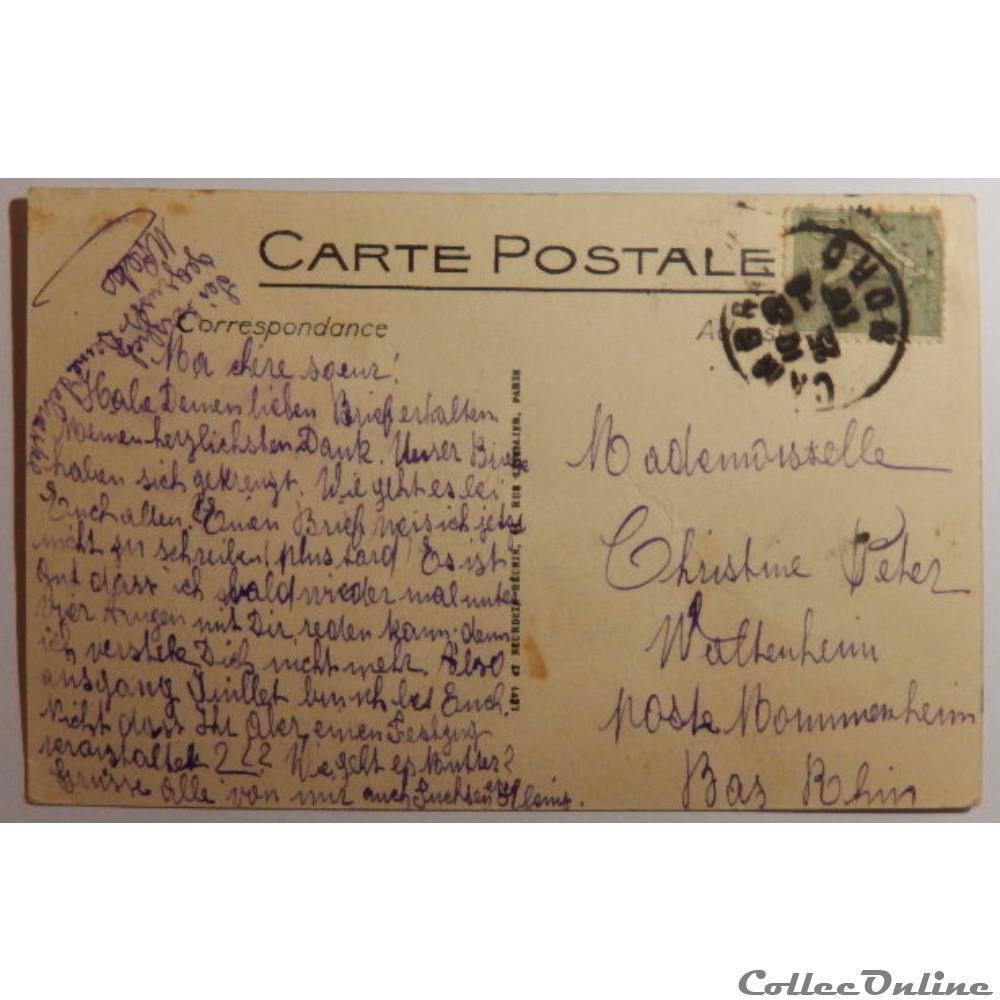 CARTE POSTALE
Correspondance
Ma chère soeur!
Habe Deinen lieben Brief erhalten
Meinen herzlichsten Dank. Unser Briefe
haben sich gekreuzt. Wie geht es bei
Euch allen. Einen Brief weis ich jetzt
nicht zu schreiben (plus tard) Es ist
gut dass ich bald wieder mal unter
vier Augen mit Dir reden kann denn
ich verstehe Dich nicht mehr. Also
ausgang Juillet bin ich bei Euch.
Nicht dass Ihr aber einen Festzug
veranstaltet ??? Wie geht es Mutter?
Grüsse alle von mir auch
Deine Schwester
LÉVY et NEURDEIN RÉUNIS, RUE LETELLIER, PARIS
Mademoiselle
Christine Peter
Waltenheim
poste Mommenheim
Bas Rhin
CollecOnline